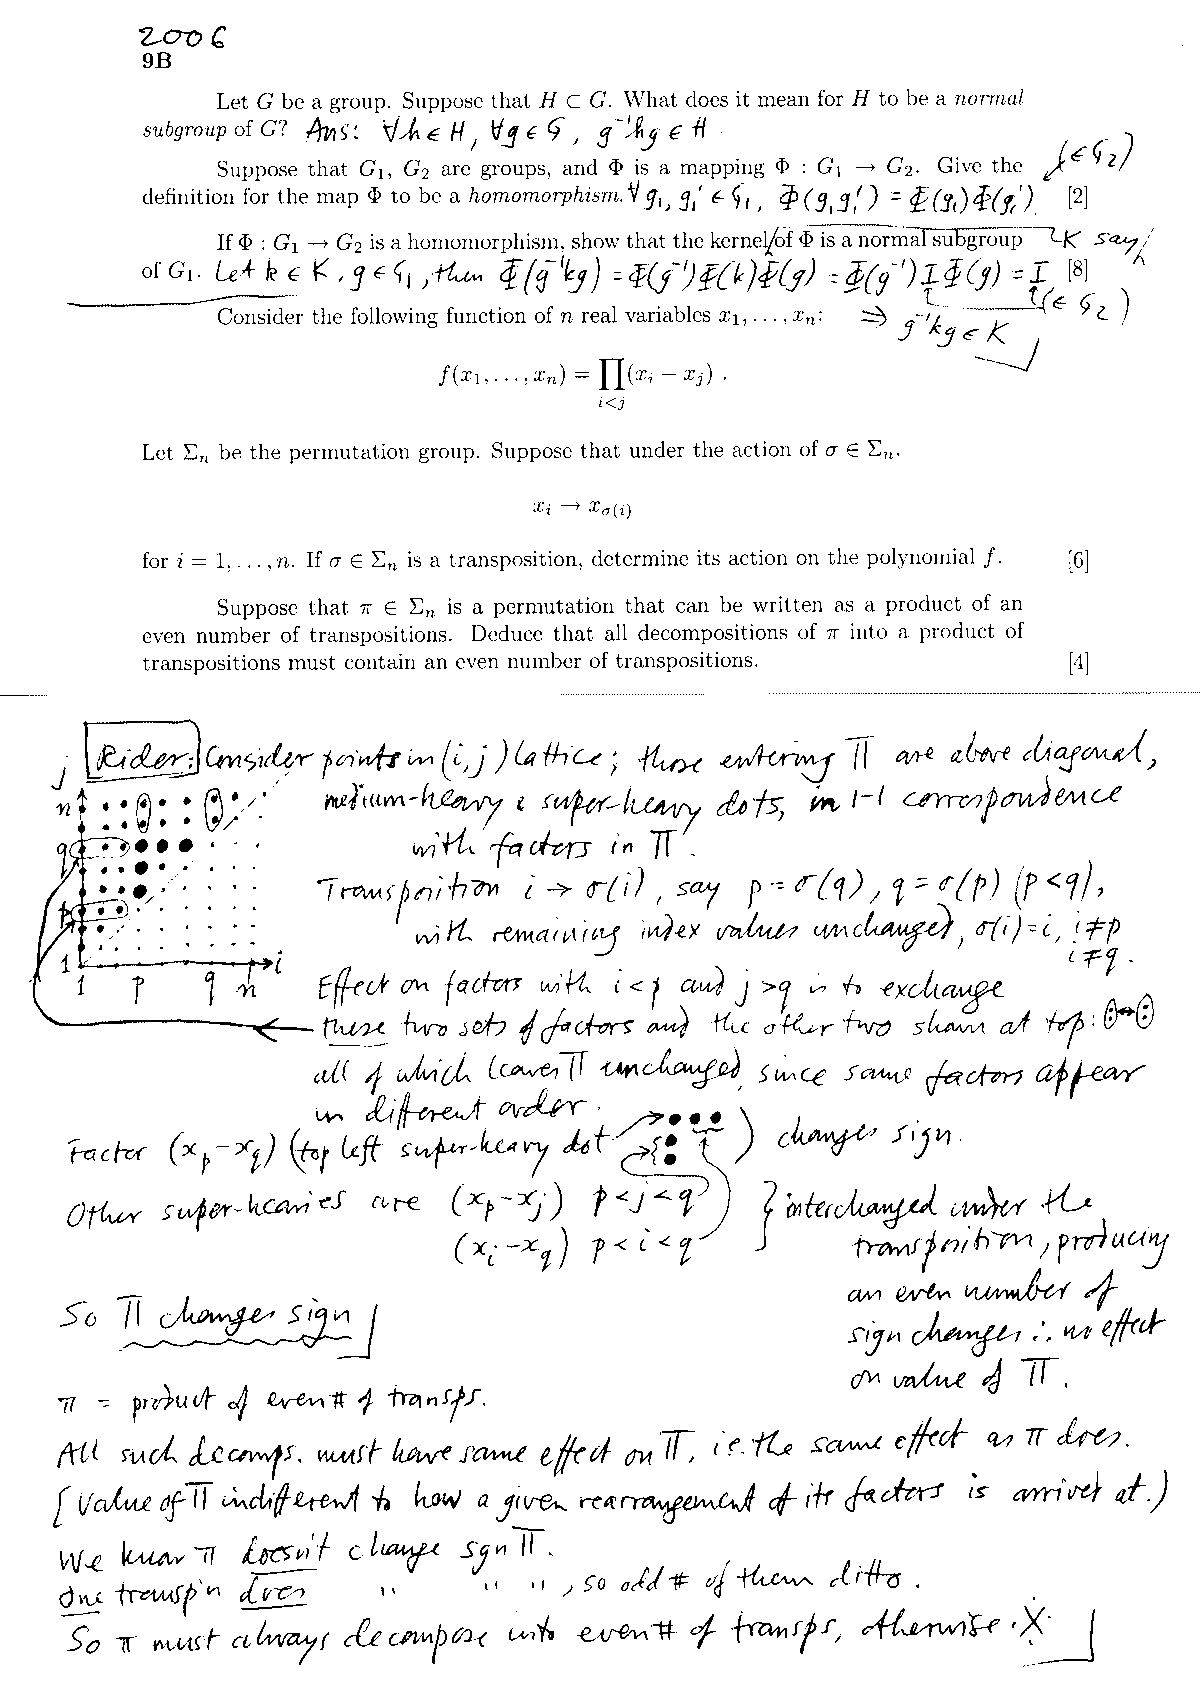 2006
9B
Let G be a group. Suppose that H ⊂ G. What does it mean for H to be a normal
subgroup of G? Ans: ∀h ∈ H, ∀g ∈ G, g⁻¹hg ∈ H.
Suppose that G₁, G₂ are groups, and Φ is a mapping Φ : G₁ → G₂. Give the (∈ G₂)
definition for the map Φ to be a homomorphism. ∀ g₁, g₁' ∈ G₁, Φ(g₁g₁') = Φ(g₁)Φ(g₁') [2]
If Φ : G₁ → G₂ is a homomorphism, show that the kernel of Φ is a normal subgroup K say,
of G₁. Let k ∈ K, g ∈ G₁, then Φ(g⁻¹kg) = Φ(g⁻¹)Φ(k)Φ(g) = Φ(g⁻¹)IΦ(g) = I [8]
(∈ G₂)
Consider the following function of n real variables x₁, . . . , xₙ: ⇒ g⁻¹kg ∈ K
f(x₁, . . . , xₙ) = ∏(xᵢ − xⱼ) .
i<j
Let Σₙ be the permutation group. Suppose that under the action of σ ∈ Σₙ,
xᵢ → x_σ(i)
for i = 1, . . . , n. If σ ∈ Σₙ is a transposition, determine its action on the polynomial f. [6]
Suppose that π ∈ Σₙ is a permutation that can be written as a product of an
even number of transpositions. Deduce that all decompositions of π into a product of
transpositions must contain an even number of transpositions. [4]
j Rider: Consider points in (i, j) lattice; those entering ∏ are above diagonal,
n medium-heavy & super-heavy dots, in 1-1 correspondence
q with factors in ∏.
Transposition i → σ(i), say p = σ(q), q = σ(p) (p < q),
p with remaining index values unchanged, σ(i) = i, i ≠ p
1 i i ≠ q.
1 p q n Effect on factors with i < p and j > q is to exchange
these two sets of factors and the other two shown at top:
all of which leaves ∏ unchanged, since same factors appear
in different order.
Factor (x_p − x_q) (top left super-heavy dot ) changes sign.
Other super-heavies are (x_p − x_j) p < j < q } interchanged under the
(x_i − x_q) p < i < q transposition, producing
an even number of
So ∏ changes sign
sign changes ∴ no effect
on value of ∏.
π = product of even # of transps.
All such decomps. must have same effect on ∏, i.e. the same effect as π does.
[Value of ∏ indifferent to how a given rearrangement of its factors is arrived at.)
We know π doesn't change sgn ∏.
One transp'n does " " ", so odd # of them ditto.
So π must always decompose into even # of transps, otherwise ·X·